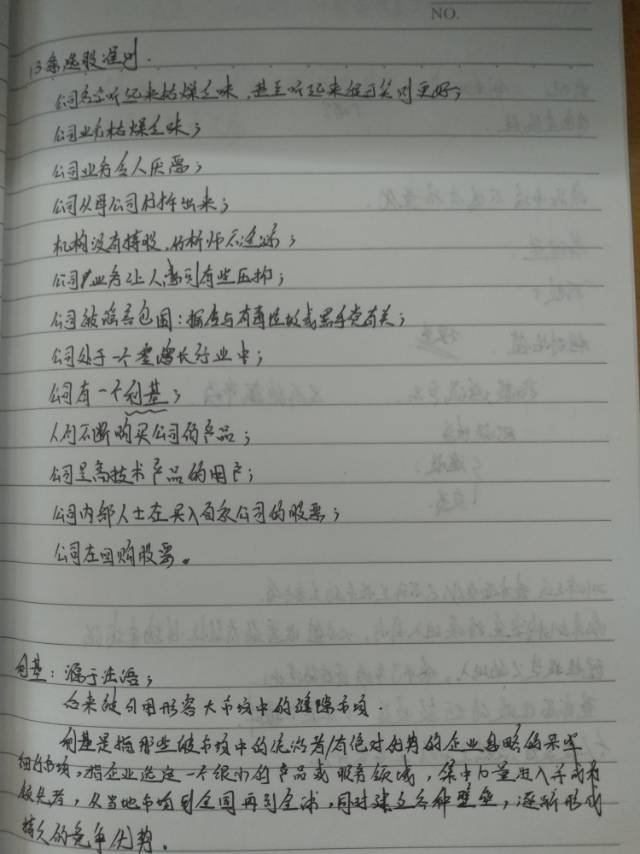 NO.
13条选股准则.
公司名字听起来枯燥乏味，甚至听起来很可笑则更好；
公司业务枯燥乏味；
公司业务令人厌恶；
公司从母公司分拆出来；
机构没有持股，分析师不追踪；
公司业务让人感到有些压抑；
公司被谣言包围：据传与有毒垃圾或黑手党有关；
公司处于一个零增长行业中；
公司有一个利基；
人们不断购买公司的产品；
公司是高技术产品的用户；
公司内部人士在买入自家公司的股票；
公司在回购股票。
利基：源于法语；
后来被引用形容大市场中的缝隙市场.
利基是指那些被市场中的统治者/有绝对优势的企业忽略的某些
细分市场，指企业选定一个很小的产品或服务领域，集中力量进入并成为
领先者，从当地市场到全国再到全球，同时建立各种壁垒，逐渐形成
持久的竞争优势.